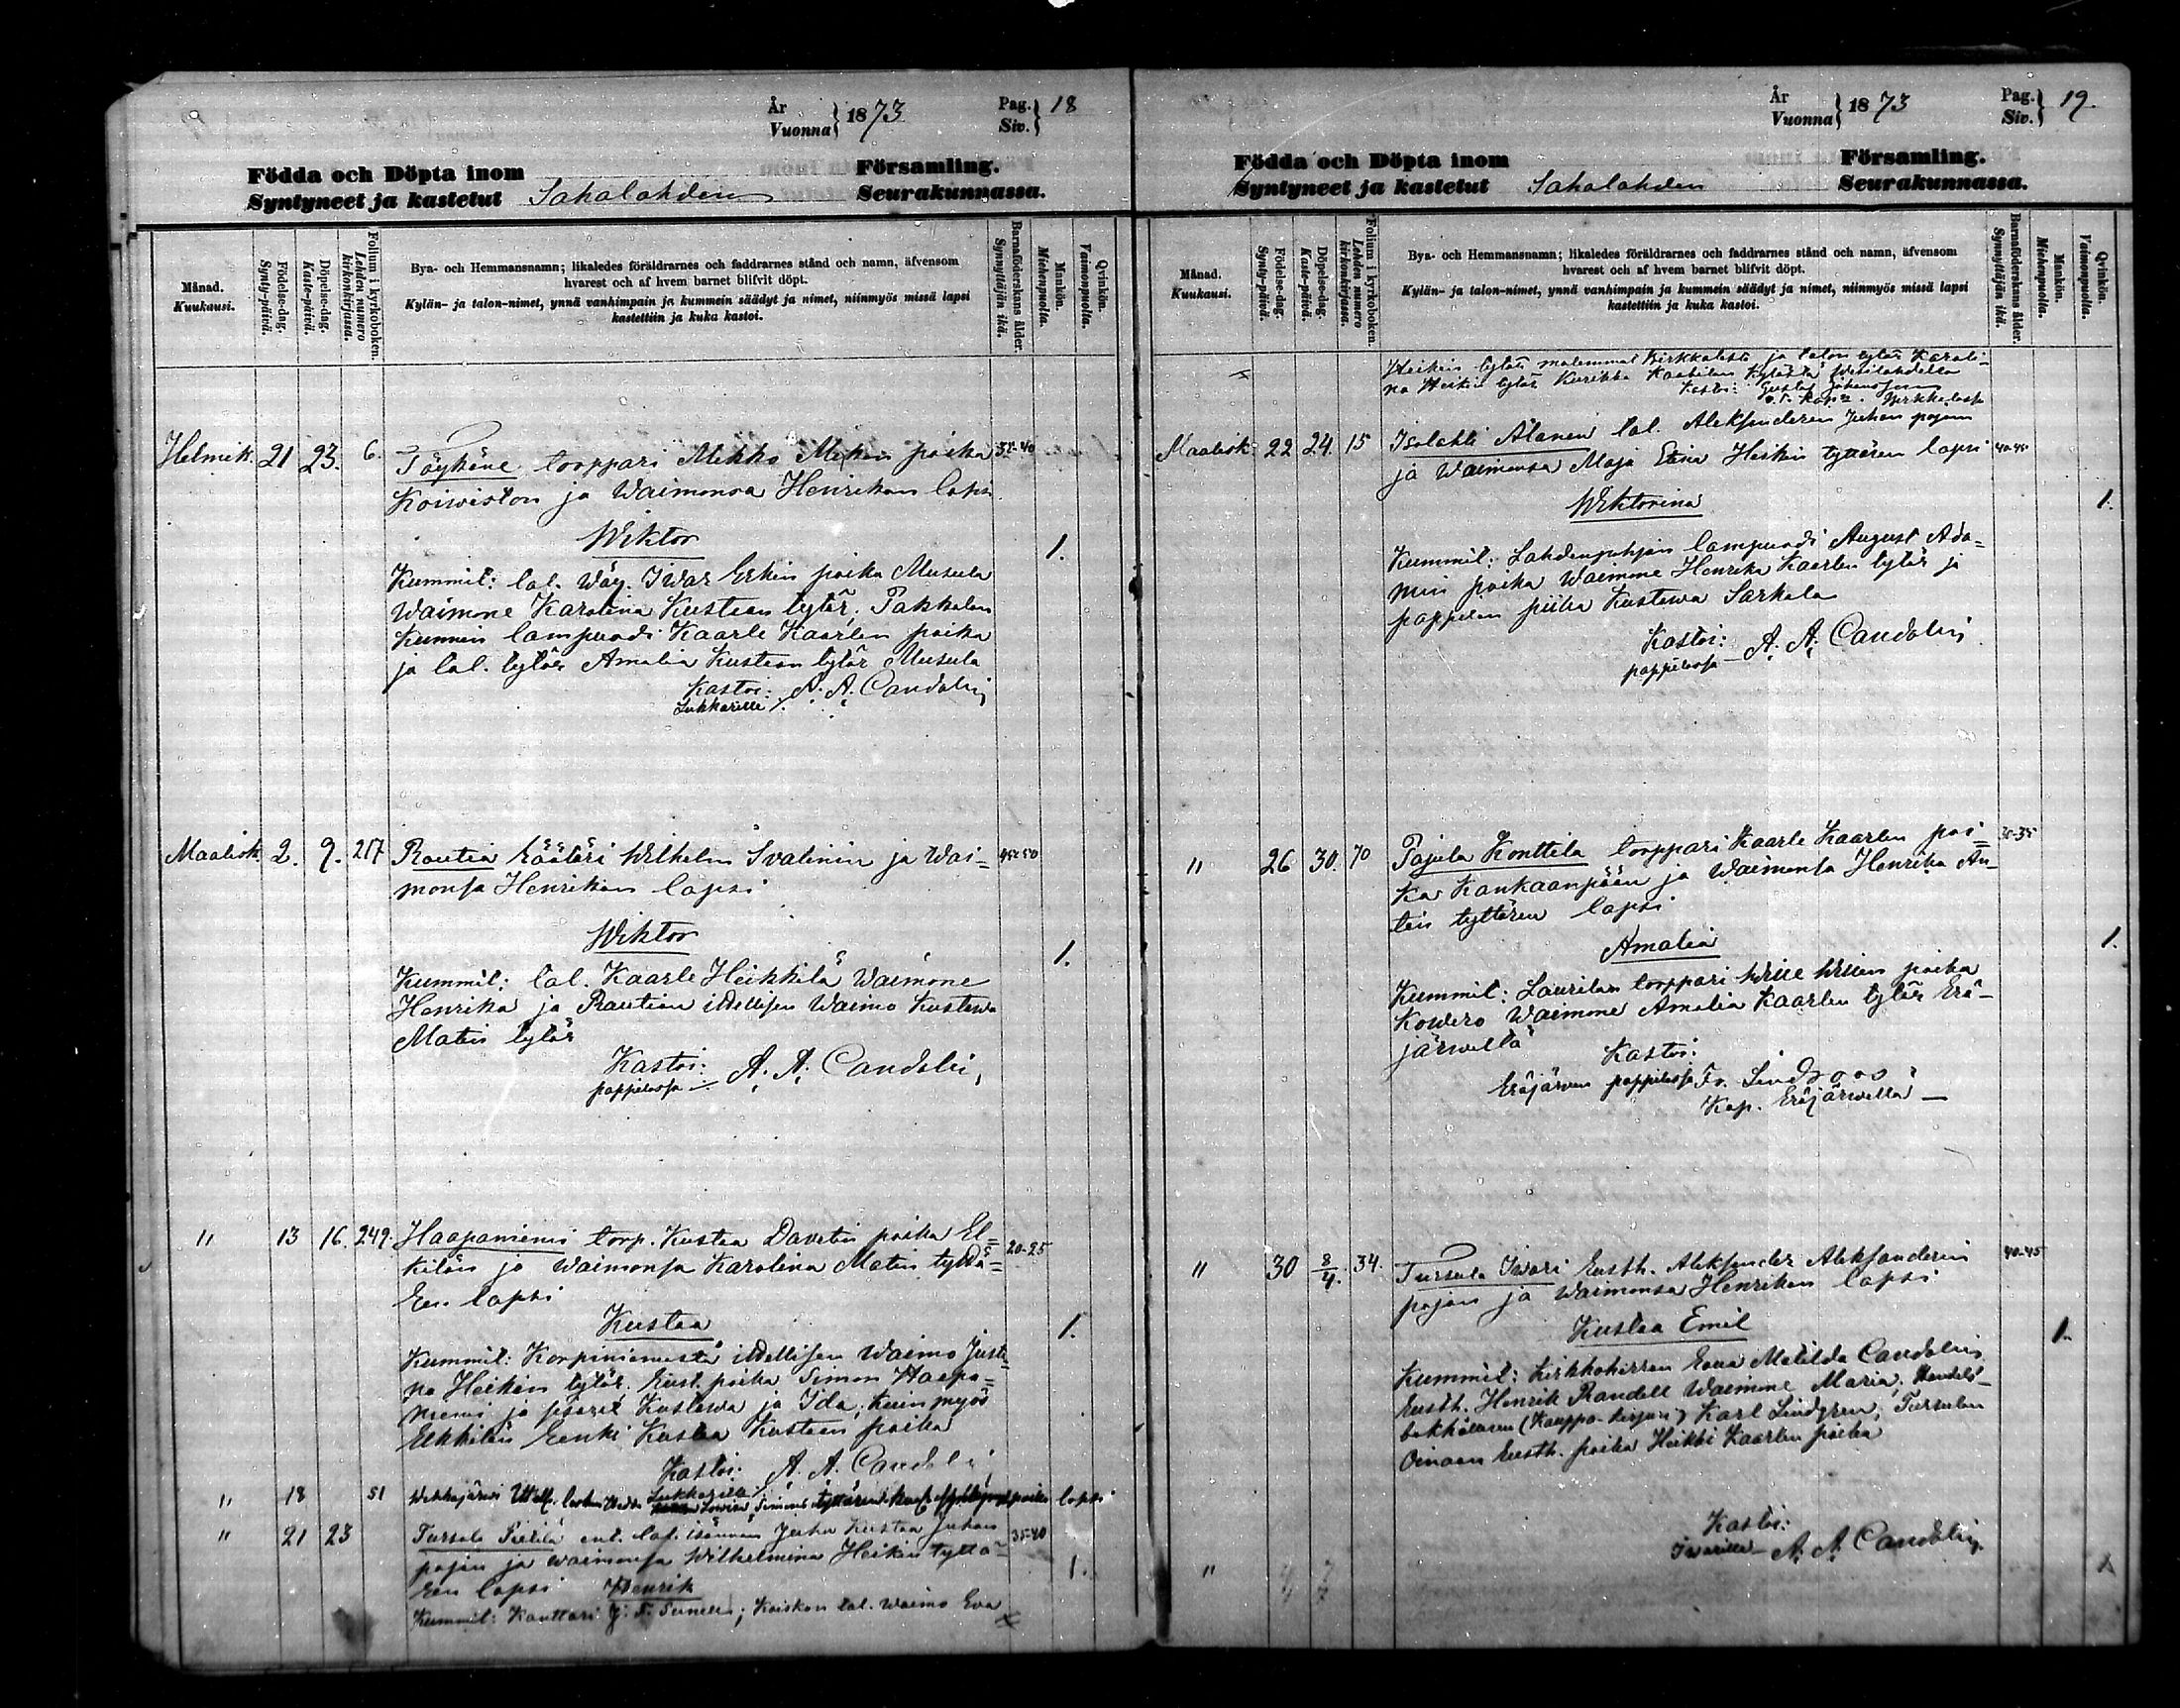 År
Vuonna 1873
Pag.
Siv. 18
Födda och Döpta inom Församling.
Syntyneet ja kastetut Sahalahden Seurakunnassa.
Månad.
Kuukausi.
Födelse-dag.
Synty-päivä.
Döpelse-dag.
Kaste-päivä.
Folium i kyrkoboken.
Lehden numero kirkonkirjassa.
Bya- och Hemmansnamn; likaledes föräldrarnes och faddrarnes stånd och namn, äfvensom
hvarest och af hvem barnet blifvit döpt.
Kylän- ja talon-nimet, ynnä vanhimpain ja kummein säädyt ja nimet, niinmyös missä lapsi
kastettiin ja kuka kastoi.
Barnaföderskans ålder.
Synnyttäjän ikä.
Mankön.
Miehenpuolta.
Qvinkön.
Vaimonpuolta.
Helmik. 21 23. 6. Töyhäne torppari Mikko poika 35-40
Koiwiston ja Waimonsa Henrikan lapsi
Wiktor 1.
Kummit: tal. wäy. Iwar Erkin poika Musula
Waimone Karolina Kustaan tytär, Pakkalan
Kunnin lampuodi Kaarle Kaarlen poika
ja tal. tytär Amalia Kustaan tytär Musula
Kastoi: A. A. Candolin
Lukkarille
Maalisk 2. 9. 217 Rautia räätäri Wilhelm Iwalinin ja Wai=
monsa Henrikan lapsi 45-50
Wiktor 1.
Kummit: tal. Kaarle Heikkilä Waimone
Henrika ja Rautian itellisen Waimo Kustawa
Matin tytär
Kastoi: A. A. Candolin,
pappilassa
" 13 16. 249. Haapaniemi torp. Kustaa Davitin poika El=
kilän ja Waimonsa Karolina Matin tyttä= 20-25
ren lapsi
Kustaa 1.
Kummit: Korpiniemestä itellisen Waimo Justi=
na Heikin tytär, Eust. poika Simon Haapa=
niemi ja piiat Kustawa ja Ida, kuin myös
Elkkilän Kustaa Kustaan poika
Kastoi: A. A. Candolin
Lukkarille
" 18 51 lapsi
" 21 23 Tursola Pietilä ent. tal. isännän Juha Kustaa Juhan 35-40
pojan ja waimonsa Wilhelmina Heikin tyttä=
ren lapsi Henrik 1.
Kummit: Kanttori J. F. Sunell; Kaiskon tal. Waimo Eva
År
Vuonna 1873
Pag.
Siv. 19.
Födda och Döpta inom Församling.
Syntyneet ja kastetut Sahalahden Seurakunnassa.
Månad.
Kuukausi.
Födelse-dag.
Synty-päivä.
Döpelse-dag.
Kaste-päivä.
Folium i kyrkoboken.
Lehden numero kirkonkirjassa.
Bya- och Hemmansnamn; likaledes föräldrarnes och faddrarnes stånd och namn, äfvensom
hvarest och af hvem barnet blifvit döpt.
Kylän- ja talon-nimet, ynnä vanhimpain ja kummein säädyt ja nimet, niinmyös missä lapsi
kastettiin ja kuka kastoi.
Barnaföderskans ålder.
Synnyttäjän ikä.
Mankön.
Miehenpuolta.
Qvinkön.
Vaimonpuolta.
Heikin tytär molemmat Pirkkalasta ja talon tytär Karoli=
na Heikin tytär Kurikka Kaakilan Kylästä Wesilahdella
Kastoi: Gustaf Johansson
Pirkkalassa
Maalisk. 22 24. 15 Isolahti Alanen tal. Aleksanderin Juhan pojan
ja Waimonsa Maja Stina Heikin tyttären lapsi 40-45
Wiktorina 1.
Kummit: Lahdenpohjan lampuodi August Ada=
min poika Waimone Henrika Kaarlen tytär ja
pappilan piika Kustawa Sarkola
Kastoi: A. A. Candolin
pappilassa
" 26 30. 70 Pajula Konttila torppari Kaarle Kaarlen poi= 30-35
ka Kankaanpään ja Waimonsa Henrika An=
tin tyttären lapsi
Amalia 1.
Kummit: Laurilan torppari Wille Willen poika
Kowero Waimone Amalia Kaarlen tytär Erä=
järwellä
Kastoi:
Eräjärwen pappilassa Fr. Lindroos
Kap. Eräjärwellä
" 30 8/4. 34. Tursula Iwari Eusth. Aleksander Aleksanderin 40-45
pojan ja Waimonsa Henrikan lapsi
Kustaa Emil 1.
Kummit: Kirkkoherran Rouva Matilda Candolin
Eusth. Henrik Randell Waimone Maria, Handels=
bokhållaren (Kauppa-kirjuri) Karl Lindgren, Tursulan
Oinaan Eusth. poika Heikki Kaarlen poika
Kastoi:
Iwarilla A. A. Candolin.
"